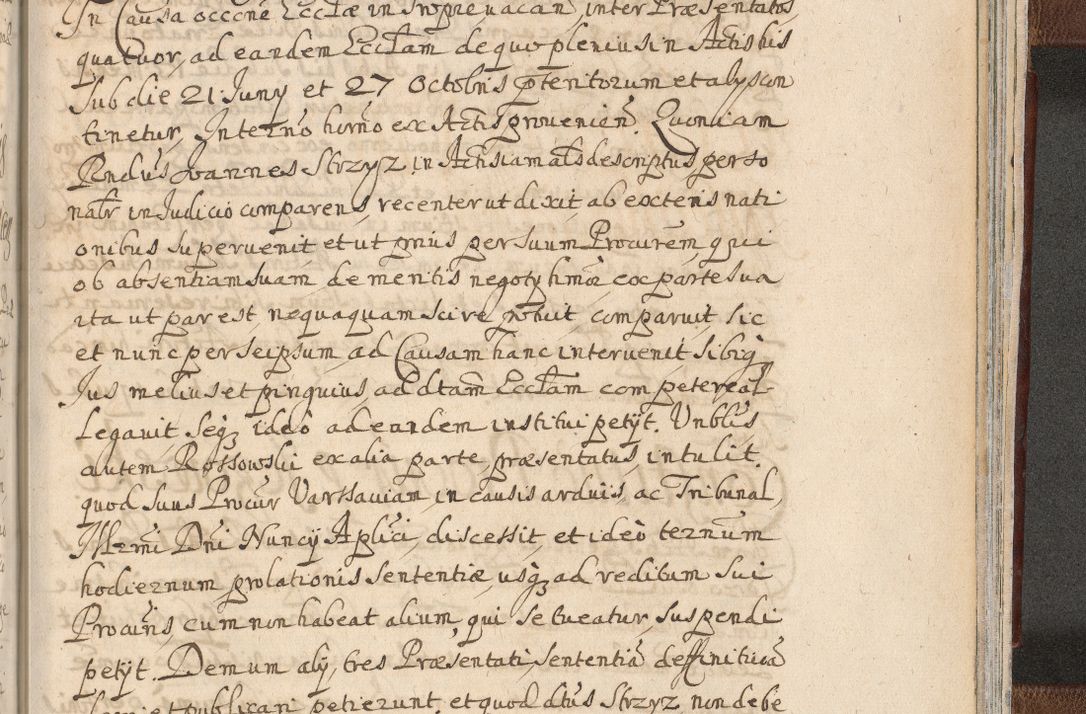 In Causa occõne Ecclæ in Srogne vacan, inter Præsentatos
quatuor, ad eandem Ecclãm de quo plenius in Actis his
sub die 21 Juny et 27 Octobris ptentorum et alys con
tinetur, Interño horño ex Actis provenien̄. Quoniam
Rñdus Joannes Strzyz in Actis iam als descriptus perso
nalr in Judicio comparens, recenter ut dixit ab exteris nati
onibus supervenit et ut prius per suum Procurem, qui
ob absentiam suam de meritis negoty hmõi ex parte sua
ita ut par est nequaquam scire potuit comparuit sic
et nunc per seipsum ad Causam hanc intervenit sibiq
Jus melius et pinguius, ad dtam Ecclãm competere al
legavit seq ideo ad eandem institui petÿt. Unblis
autem Rossowski ex alia parte præsentatus, intulit
quod suus Procur Varssaviam in causis arduis, ac Tribunal,
Illrmi Dñi Nuncÿ Aplici, discessit, et ideò ternum
hodiernum prolationis sententiæ, usq ad reditum sui
Procuris, cum non habeat alium, qui se tueatur, suspendi
petÿt. Demum aly, tres Præsentati, sententiã deffinitivã
et publicari petierunt, et quod dtus Strzyz non debe